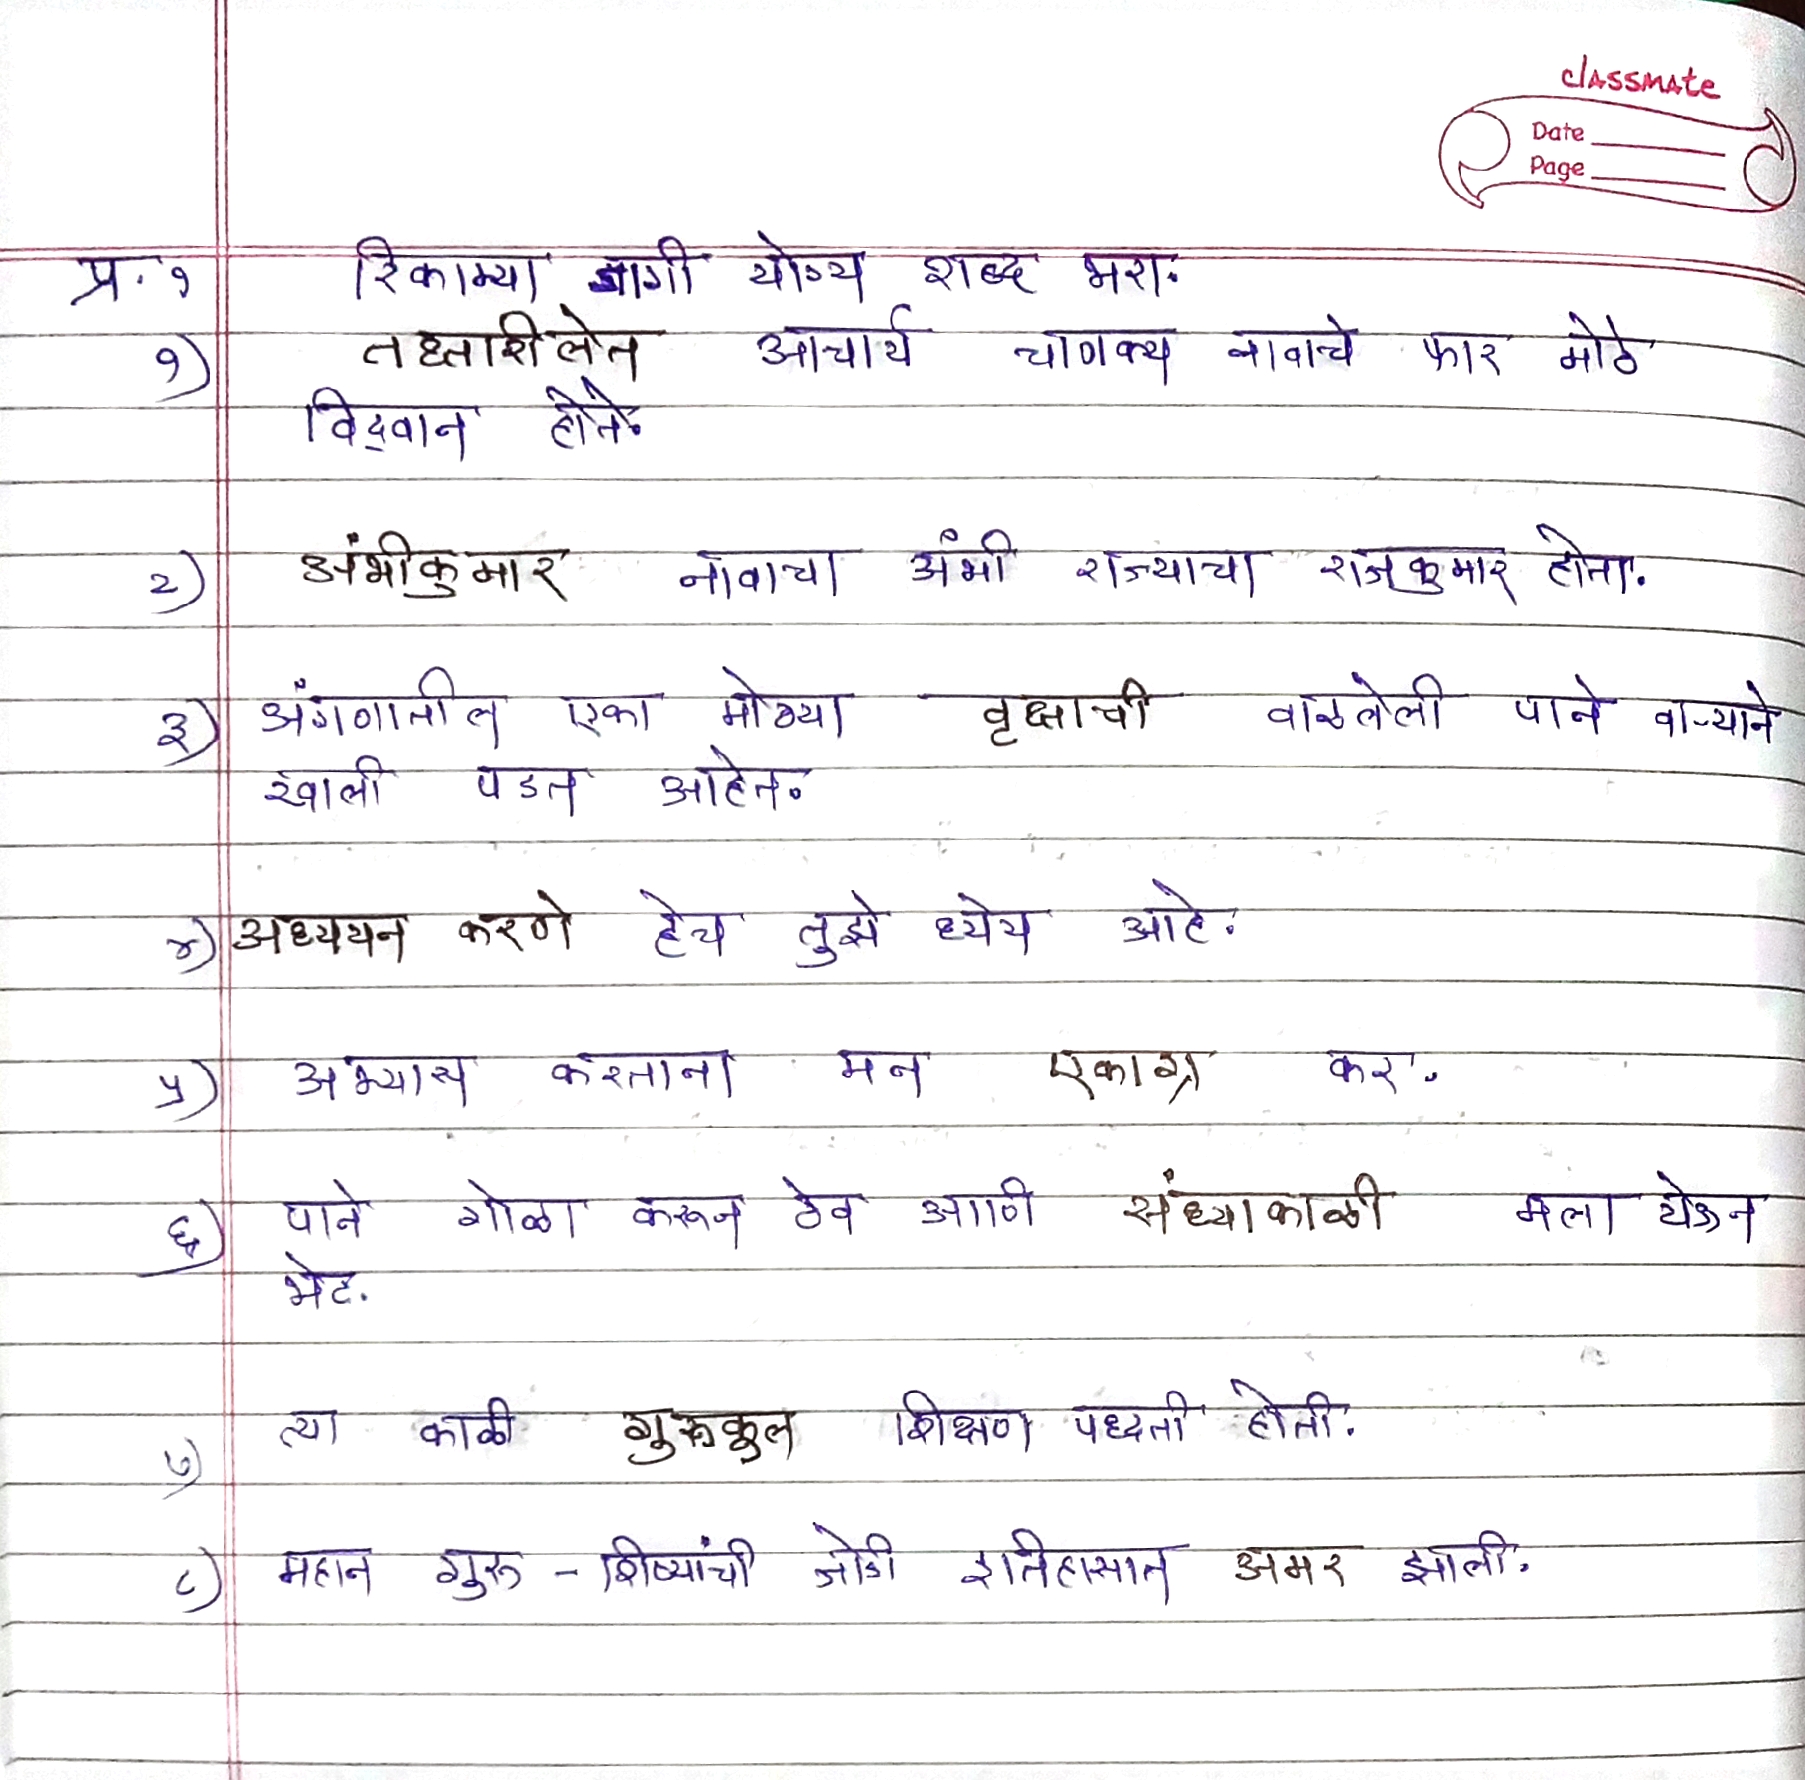 classmate
Date
Page
प्र. १ रिकाम्या जागी योग्य शब्द भरा.
१) तक्षशीलेत आचार्य चाणक्य नावाचे फार मोठे
विद्वान होते.
२) अंभीकुमार नावाचा अंभी राज्याचा राजकुमार होता.
३) अंगणातील एका मोठ्या वृक्षाची वाळलेली पाने वाऱ्याने
खाली पडत आहेत.
४) अध्ययन करणे हेच तुझे ध्येय आहे.
५) अभ्यास करताना मन एकाग्र कर.
६) पाने गोळा करून ठेव आणि संध्याकाळी मला येऊन
भेट.
७) त्या काळी गुरुकुल शिक्षण पध्दती होती.
८) महान गुरू - शिष्यांची जोडी इतिहासात अमर झाली.